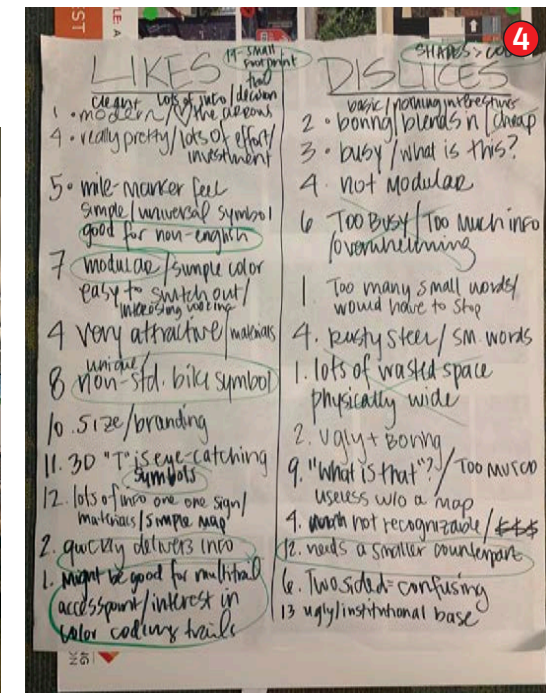 4
SHAPES >
19 - small
footprint
LIKES
DISLIKES
clean lots of info / decision
1. modern / ♡ the arrows
4. really pretty / lots of effort /
investment
5. mile-marker feel
simple / universal symbol
good for non-english
7 modular / simple color
easy to switch out /
interesting looking
4 very attractive / materials
unique /
8 non-std. bike symbol
10. size / branding
11. 3D "T" is eye-catching
symbols
12. lots of info one one sign /
materials / simple map
2. quickly delivers info
1. Might be good for multitrail
accesspoint / interest in
color coding trails
basic / nothing interesting
2. boring / blends in / cheap
3. busy / what is this?
4. not modular
6 TOO BUSY / Too Much info
/ overwhelming
1 Too many small words /
would have to stop
4. rusty steel / sm. words
1. lots of wasted space
physically wide
2. ugly + Boring
9. "what is that"? / TOO
useless w/o a map
4. not recognizable / $$$
12. needs a smaller counterpart
6. Two sided = confusing
13 ugly / institutional base